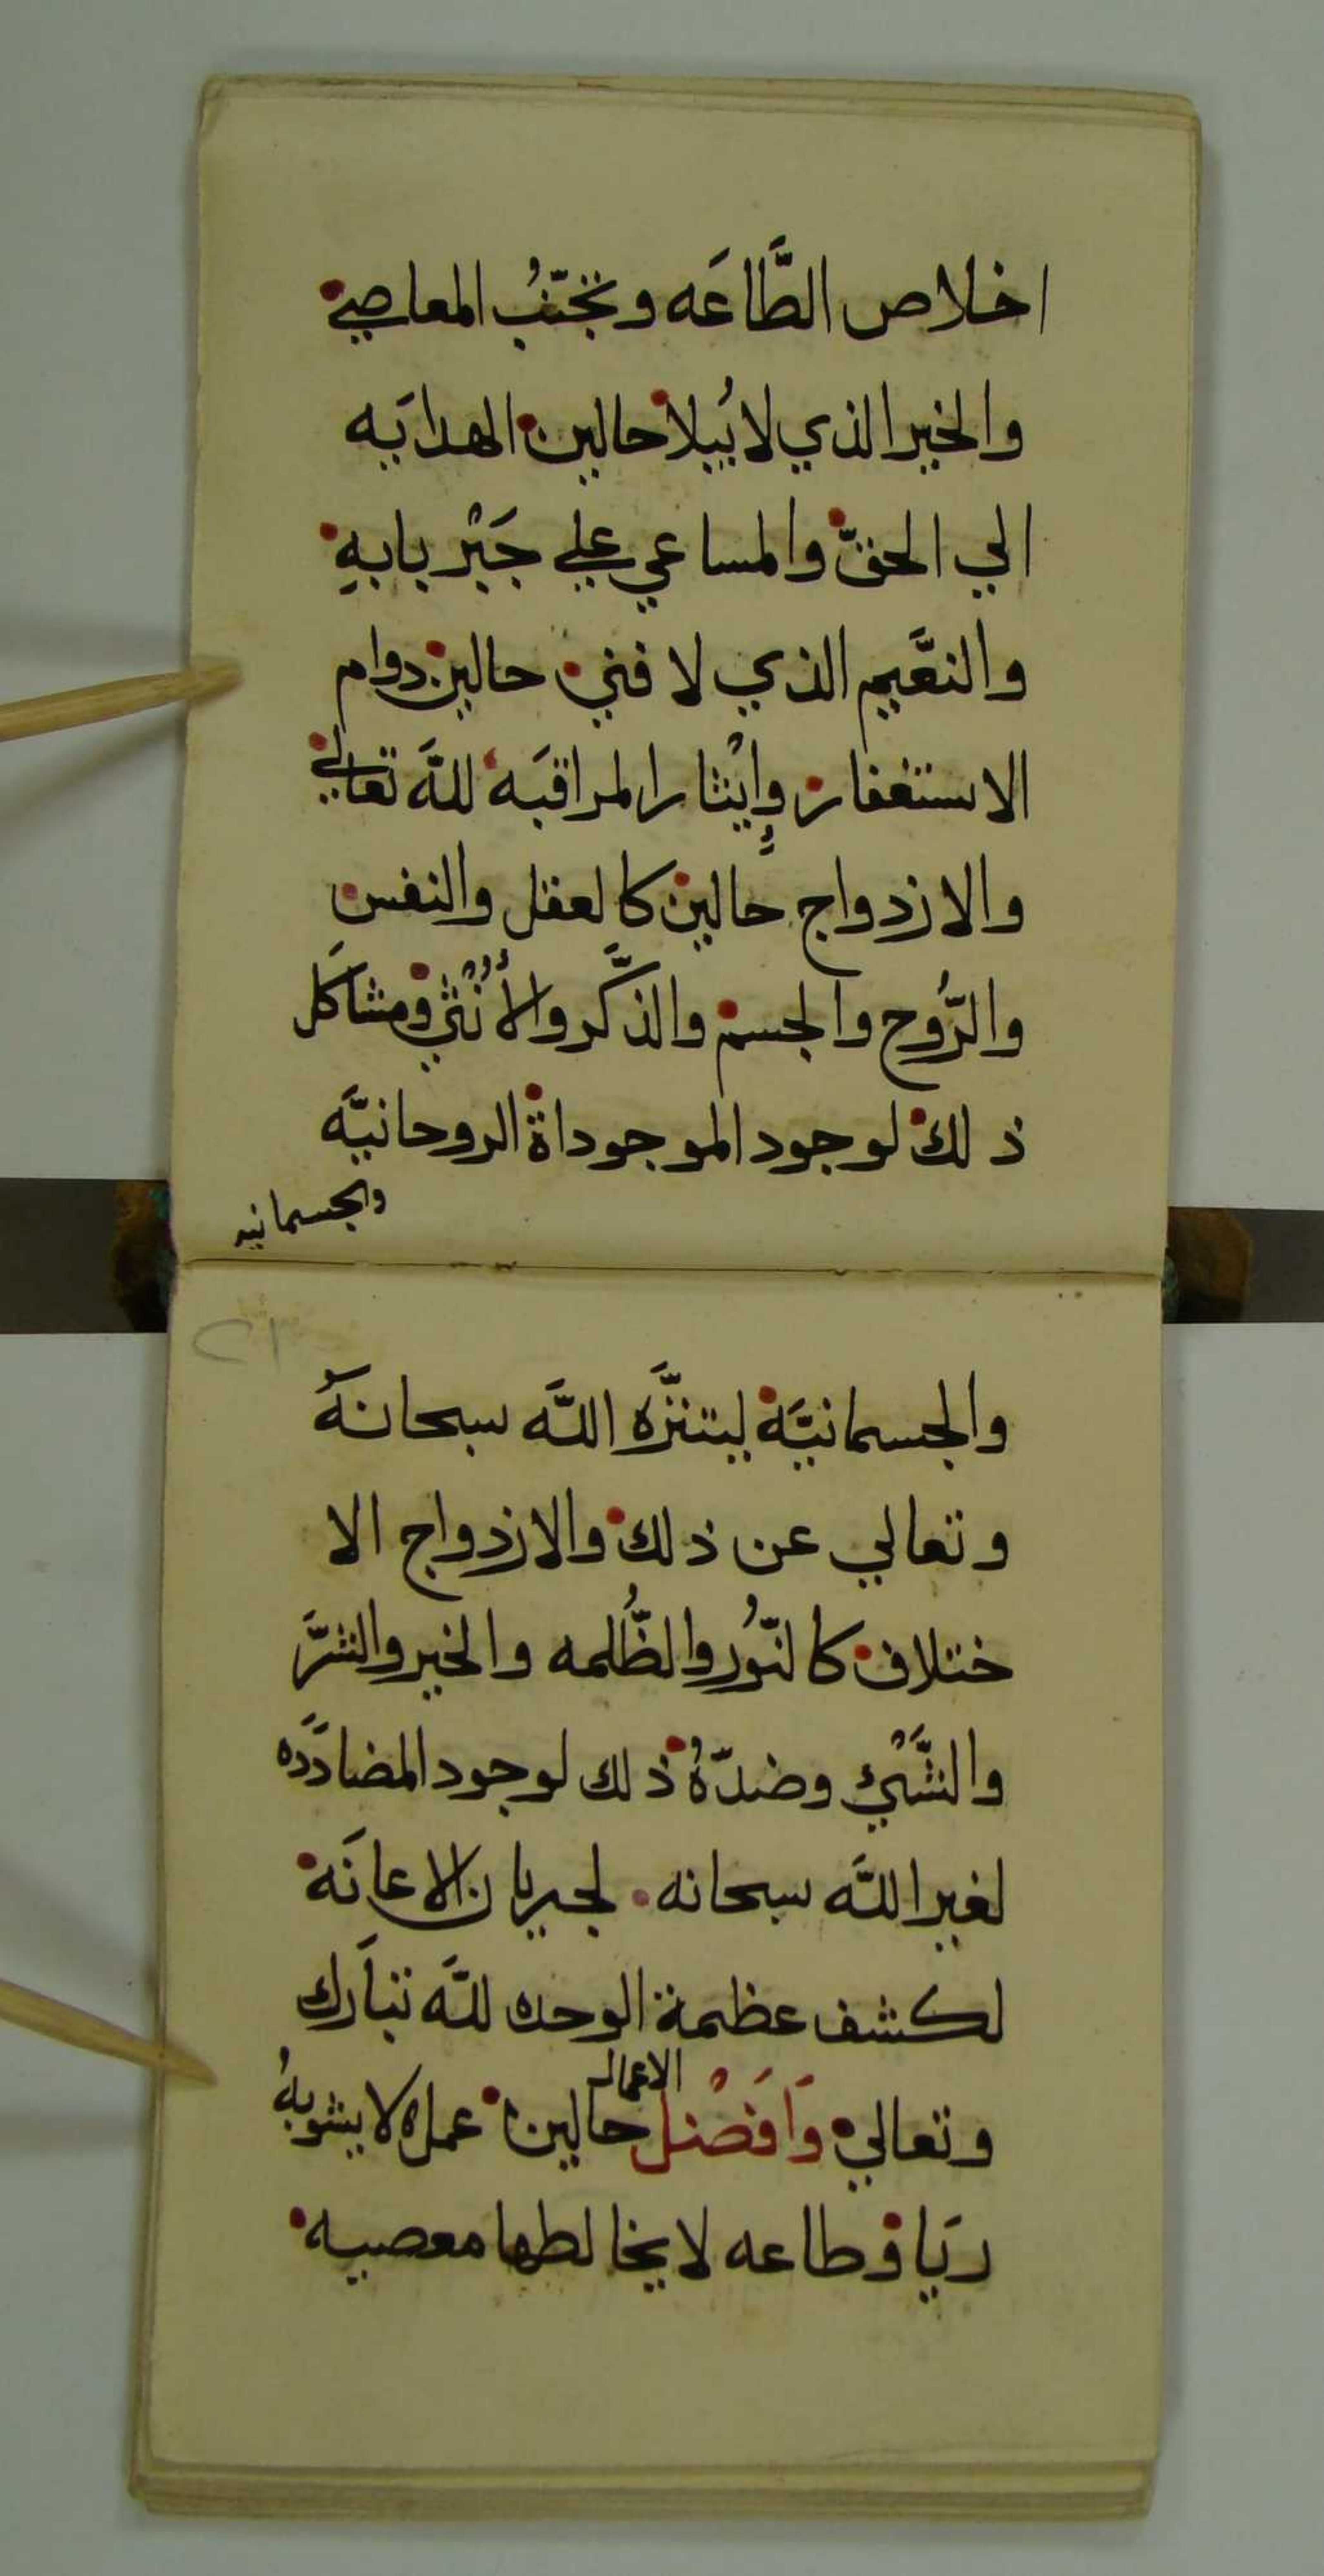 اخلاص الطَّاعَه وتجنّبُ المعاصي
والخير الذي لا يُبلا حالين الهدايَه
الي الحقّ والمساعي علي جَيْر بابهِ
والنعَّيم الذي لا فني حالين دوام
الاستغفار وإيْثار المراقبَه للَّه تعالي
والازدواج حالين كالعقل والنفس
والرُّوح والجسم والذَّكر والأُنْثي ومشاكَل
ذلك لوجود الموجوداة الروحانيَّه
والجسمانيه
٢٣
والجسمانيَّة ليتنزَّه اللَّه سبحانَهُ
وتعالي عن ذلك والازدواج الا
ختلاف كالنُّور والظُّلمه والخير والشرَّ
والشَّيْئ وضدّهُ ذلك لوجود المضادَّده
لغير اللَّه سبحانه لجريان الاعانَة
لكشف عظيمة الوحده للَّه تبارَك
وتعالي وَاَفَضْل الاعمال حالين عمل لا يشوبهُ
ريَا وطاعه لا يخالطها معصيه